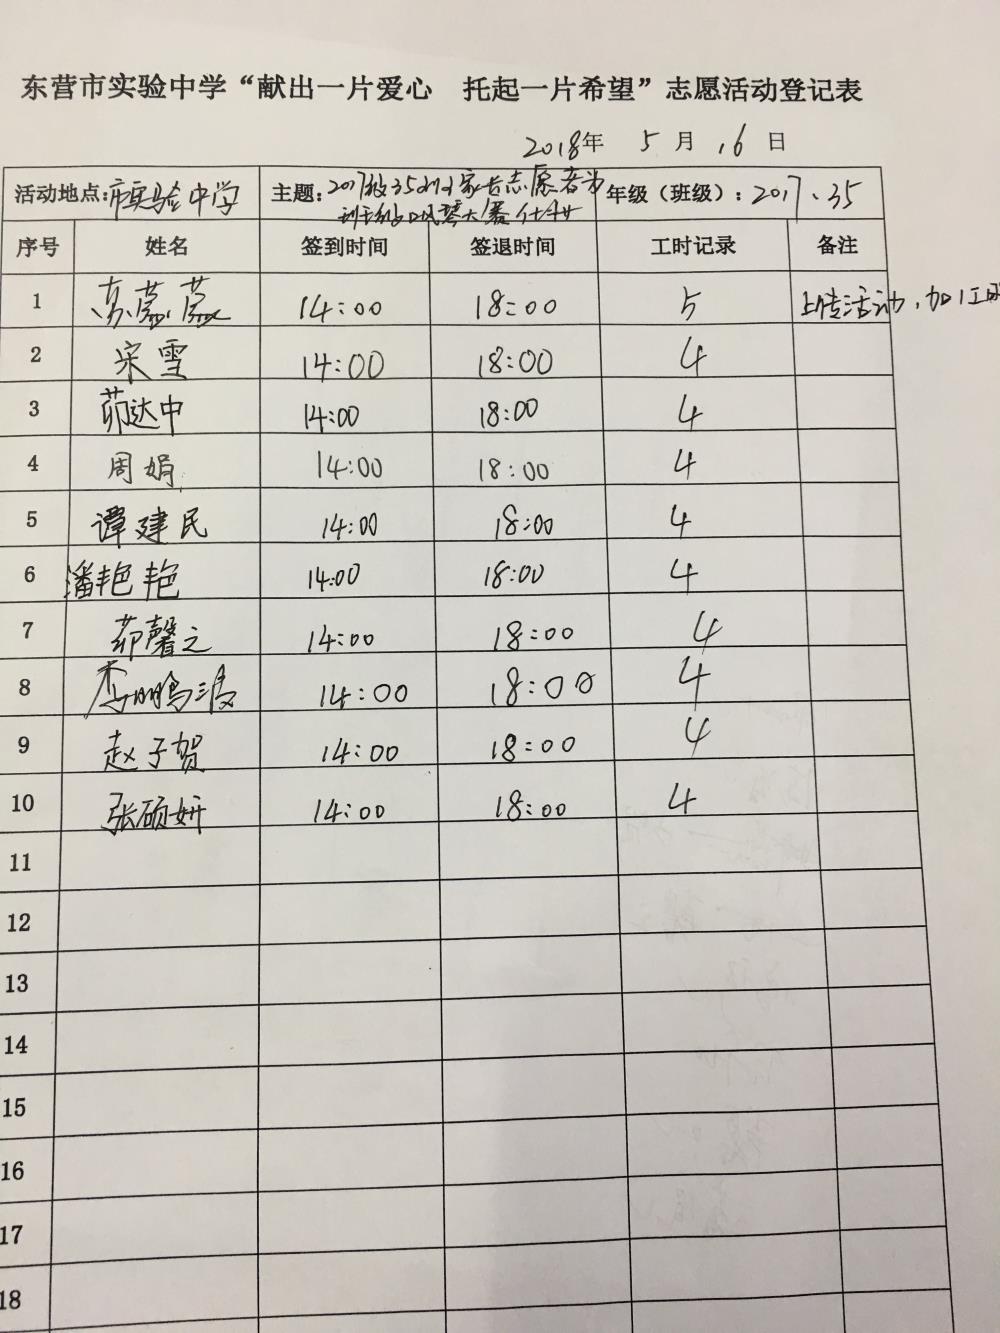 东营市实验中学“献出一片爱心 托起一片希望”志愿活动登记表
2018年 5月 16日
活动地点:市实验中学 主题:2017级35班家长志愿者为 年级(班级):2017、35
口风琴大赛
序号 姓名 签到时间 签退时间 工时记录 备注
1 苏蕊蕊 14:00 18:00 5 上传活动,加1工时
2 宋雪 14:00 18:00 4
3 茆达中 14:00 18:00 4
4 周娟 14:00 18:00 4
5 谭建民 14:00 18:00 4
6 潘艳艳 14:00 18:00 4
7 茆馨之 14:00 18:00 4
8 李鹏波 14:00 18:00 4
9 赵子贺 14:00 18:00 4
10 张硕妍 14:00 18:00 4
11
12
13
14
15
16
17
18